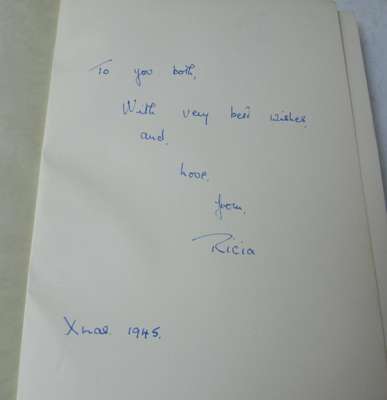 To you both,
With very best wishes
and
Love,
from,
Ricia
Xmas 1945.